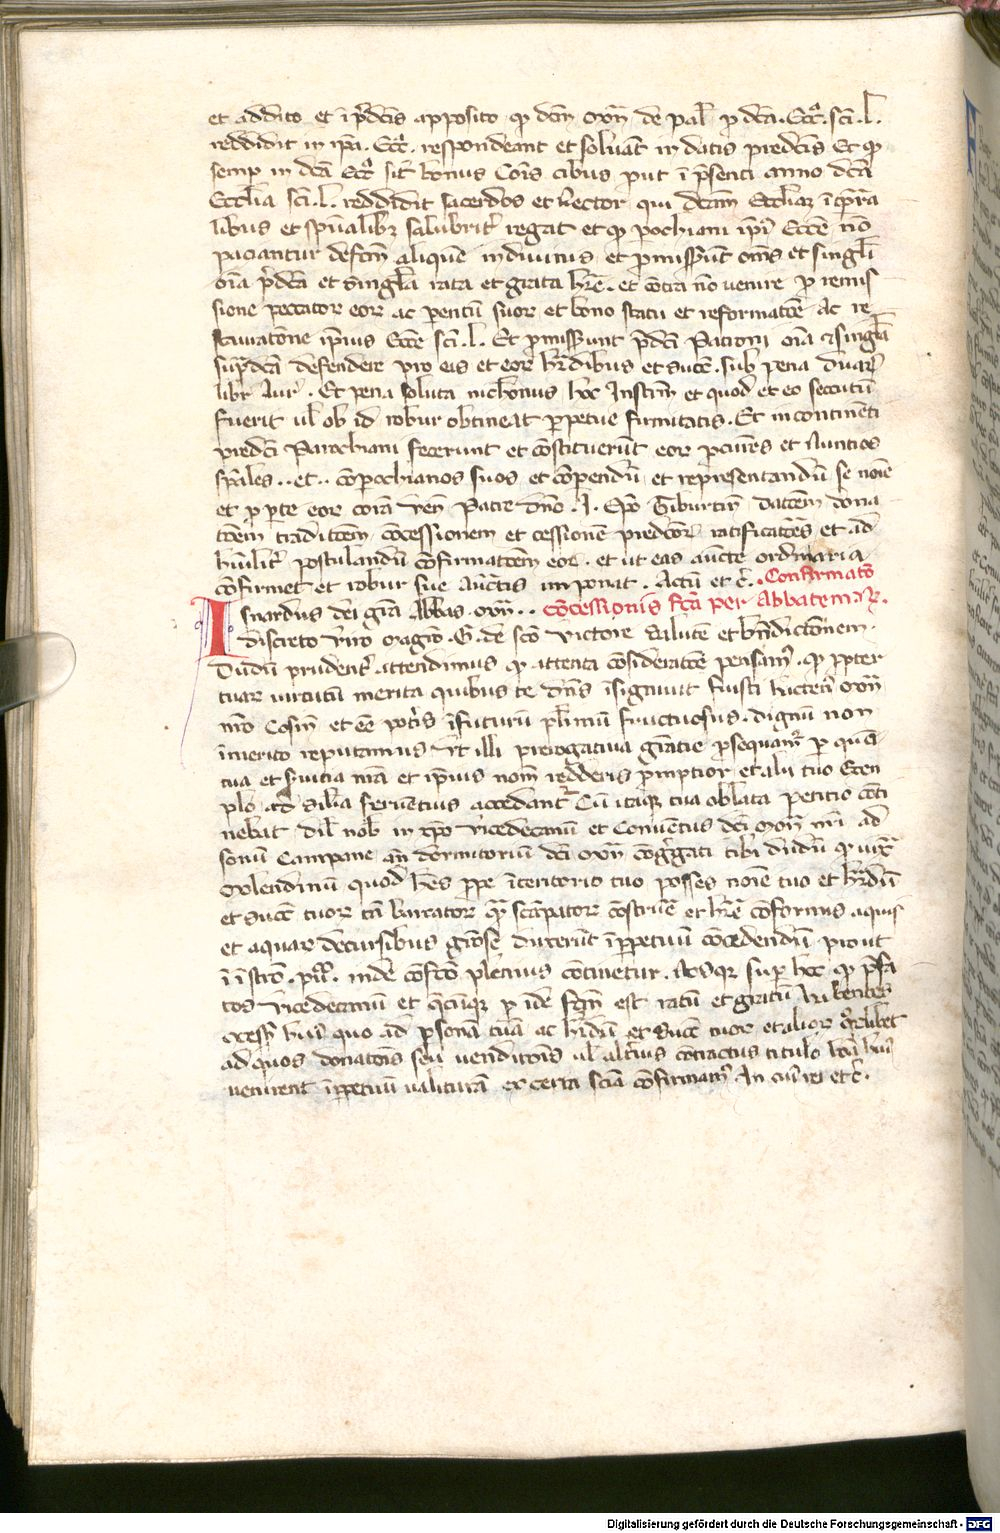 et addito et i p̄dc̄is apposito qͥ dc̄m mōn de pal̄ p dc̄a. Ecc̄e. sc̄i. l.
reddidit in ip̄a. Ecc̄e. respondeant et soluāt in datis predc̄is Et qͥ
semp in dc̄a Ecc̄a sit bonus Cōis cibus put i p̄senti anno dc̄a
Ecc̄lia sc̄i. l. reddidit sacerdos et Rector qui dc̄am Eccliaʒ i tp̄ora
libus et spūalibʒ salubrit̄ regat et qͥ pochiani ip̄i Ecc̄e nō
paciantur defc̄m aliquē in diuinis et pmiss̄unt oms et singłi
oīa p̄dc̄a et singła rata et grata hr̄e. et cōtra nō venire p remis
sione peccator̄ eor̄ ac pentū suor̄ et bono statu et reformatōe Ac re
stauratōne ip̄ius Ecc̄e sc̄i. l. Et pmiss̄unt p̄dc̄i Patroni oīa et singła
sup̄dc̄a defendere pro eis et eor̄ hr̄dibus et succ̄. sub pena duar̄
libr̄ Aur̄. Et pena soluta nichōnus hoc Instrm̄ et quod et eo secutū
fuerit ul̄ ob id robur obtineat ppetue firmitatis. Et incontinēti
predc̄i Parochiani fecerunt et cōstituerūt eor̄ pcur̄es et Nuntios
sp̄ales.. et.. cōpochianos suos et cōpendū et representandū se noīe
et p pte eor̄ corā Ven̄ Patre dn̄o. J. Ep̄o Tiburtin̄ datōem dona
tōem traditōem cōcessionem et cessionē predc̄or̄ ratificatōes et ad
humilit̄ postulandū cōfirmatōem eor̄. et ut eas aucte ordinaria
cōfirmet et robur sue Auctis imponat. Actū et c̄. Confirmatō
cōcessionis fc̄a per Abbatem
Isnardus dei gr̄a Abbas mōn..
discreto viro magrō. G. de sc̄o Victore salutē et bn̄dictōnem.
Dudū prudent̄ attendimus qͥ attenta cōsideratōe pensam̄. qͥ ppter
tuar̄ uirtutū merita quibus te dn̄s isigniuit fuisti hacten̄ mōn
nr̄o Cosin̄ et eē pot̄is i futurū pl̄imū fructuosus. dignū non
imerito reputamus Vt illi prerogatiua gr̄atie psequam̄ p quē
tua et seruitia nr̄a et ip̄ius nom̄ redderis pmptior et alii tuo Exen
plo ad silia feruentius accedant̄ Cū itaqʒ tua oblata Petitio cōti
nebat dil̄ nob̄ in xp̄o Vicedecanū et Conuentus dc̄i mōn nr̄i ad
sonū Campane an̄ dormitoriū dc̄i mōn cōgregati tibi dudū qͥ iuxͣ
molendinū quod hēs ppe i territorio tuo posses noīe tuo et hr̄dū
et succ̄ tuor̄
et aquar̄ decursibus gr̄ose duxerūt i ppetuū concedendū prout
i istro. pub̄. inde cōfc̄o plenius cōtinetur. Nosqʒ sup hoc qͥ p̄fa
tos Vicedecanū et qͥcūqʒ p idē fc̄m est ratū et gratū habentes
quo ad psonā tuā ac hr̄dū et succ̄ tuor̄ et alior̄ qͦrlibet
ad quos donatōis seu uenditōis ul̄ alt̄ius cōtractus titulo
uenirent i ppetuū ualiturā ex certa scīa cōfirmam̄ In cui rei et c̄.